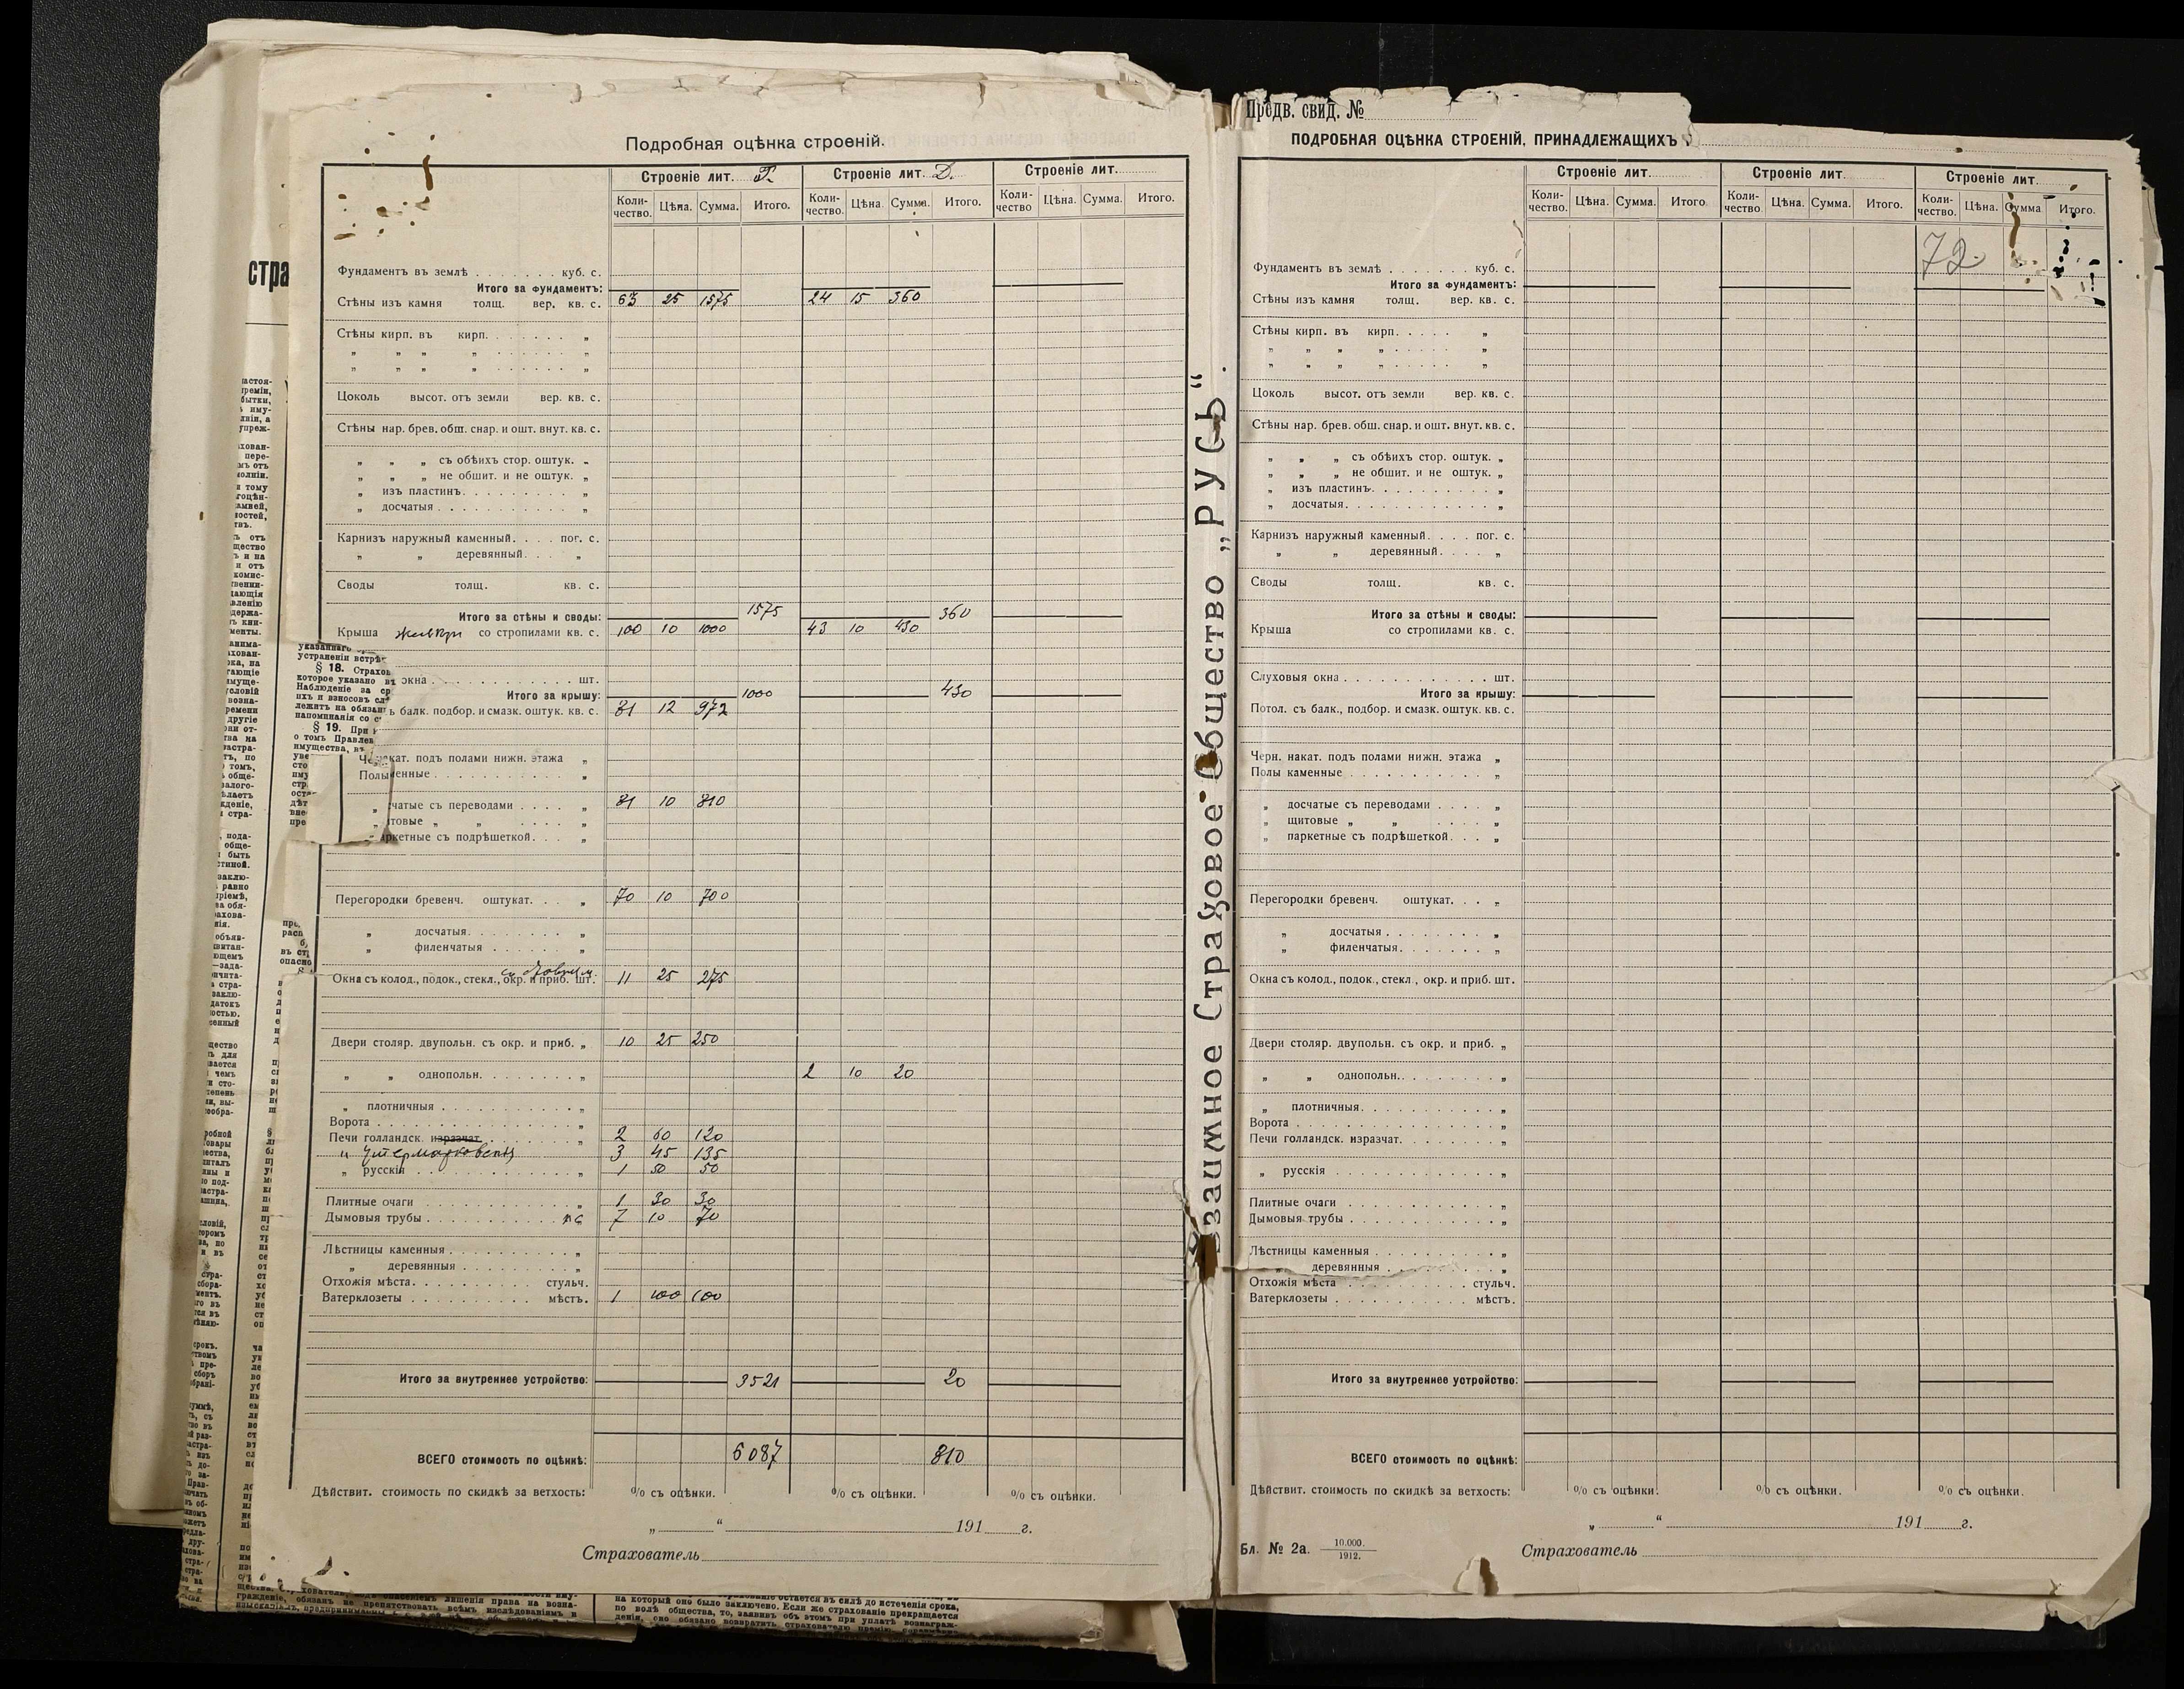 Подробная оцѣнка строеній.
Строеніе лит. Г. Строеніе лит. Д. Строеніе лит.
Коли-чество. Цѣна. Сумма. Итого. Коли-чество. Цѣна. Сумма. Итого. Коли-чество Цѣна. Сумма. Итого.
Фундаментъ въ землѣ . . . . . . . куб. с.
Итого за фундаментъ:
Стѣны изъ камня толщ. вер. кв. с. 63 25 1575 24 15 360
Стѣны кирп. въ кирп. . . . . . . „
„ „ „ „ . . . . . . „
„ „ „ „ . . . . . . „
Цоколь высот. отъ земли вер. кв. с.
Стѣны нар. брев. обш. снар. и ошт. внут. кв. с.
„ „ „ съ обѣихъ стор. оштук. „
„ „ „ не обшит. и не оштук. „
„ изъ пластинъ. . . . . . . . . „
„ досчатыя . . . . . . . . . . . „
Карнизъ наружный каменный. . . . пог. с.
„ „ деревянный. . . „
Своды толщ. кв. с.
Итого за стѣны и своды: 1575 360
Крыша со стропилами кв. с. 100 10 1000 43 10 430
окна . . . . . . . . . . . . шт.
Итого за крышу: 1000 430
ъ балк. подбор. и смазк. оштук. кв. с. 81 12 972
Че кат. подъ полами нижн. этажа „
Полы енные . . . . . . . . . . . „
„ чатые съ переводами . . . . „ 81 10 810
„ товые „ „ . . . . „
„ аркетные съ подрѣшеткой. . . „
Перегородки бревенч. оштукат. . . „ 70 10 700
„ досчатыя. . . . . . . . „
„ филенчатыя . . . . . . „
Окна съ колод., подок., стекл., окр. и приб. шт. 11 25 275
Двери столяр. двупольн. съ окр. и приб. „ 10 25 250
„ „ однопольн. . . . . . . . „ 2 10 20
„ плотничныя . . . . . . . . . . . „
Ворота . . . . . . . . . . . . . . . . „
Печи голландск. изразчат. . . . . . . „ 2 60 120
„ Утермарковскія 3 45 135
„ русскія . . . . . . . . . . . . . „ 1 50 50
Плитные очаги . . . . . . . . . . . . „ 1 30 30
Дымовыя трубы . . . . . . . . . . пс 7 10 70
Лѣстницы каменныя . . . . . . . . . . „
„ деревянныя . . . . . . . . . „
Отхожія мѣста. . . . . . . . . . стульч.
Ватерклозеты . . . . . . . . . . мѣстъ. 1 100 100
Итого за внутреннее устройство: 3521 20
ВСЕГО стоимость по оцѣнкѣ: 6087 810
Дѣйствит. стоимость по скидкѣ за ветхость: % съ оцѣнки. % съ оцѣнки. % съ оцѣнки.
„ “ 191 г.
Страхователь
Взаимное Страховое Общество „РУСЬ“.
Предв. свид. №
ПОДРОБНАЯ ОЦѢНКА СТРОЕНІЙ, ПРИНАДЛЕЖАЩИХЪ
Строеніе лит. Строеніе лит. Строеніе лит.
Коли-чество. Цѣна. Сумма. Итого Коли-чество Цѣна. Сумма. Итого. Коли-чество. Цѣна. Сумма Итого.
72
Фундаментъ въ землѣ . . . . . . . куб. с.
Итого за фундаментъ:
Стѣны изъ камня толщ. вер. кв. с.
Стѣны кирп. въ кирп. . . . . „
„ „ „ „ . . . . . „
„ „ „ „ . . . . . „
Цоколь высот. отъ земли вер. кв. с.
Стѣны нар. брев. обш. снар. и ошт. внут. кв. с.
„ „ „ съ обѣихъ стор. оштук. „
„ „ „ не обшит. и не оштук. „
„ изъ пластинъ. . . . . . . . . . „
„ досчатыя. . . . . . . . . . . . „
Карнизъ наружный каменный. . . . пог. с.
„ „ деревянный. . . . „
Своды толщ. кв. с.
Итого за стѣны и своды:
Крыша со стропилами кв. с.
Слуховыя окна . . . . . . . . . . . . шт.
Итого за крышу:
Потол. съ балк., подбор. и смазк. оштук. кв. с.
Черн. накат. подъ полами нижн. этажа „
Полы каменные . . . . . . . . . . . „
„ досчатые съ переводами . . . . „
„ щитовые „ „ . . . . „
„ паркетные съ подрѣшеткой. . . „
Перегородки бревенч. оштукат. . . „
„ досчатыя . . . . . . . . „
„ филенчатыя. . . . . . . „
Окна съ колод., подок., стекл., окр. и приб. шт.
Двери столяр. двупольн. съ окр. и приб. „
„ „ однопольн. . . . . . . . „
„ плотничныя. . . . . . . . . . . „
Ворота . . . . . . . . . . . . . . . . „
Печи голландск. изразчат. . . . . . . „
„ русскія . . . . . . . . . . . . . „
Плитные очаги . . . . . . . . . . . . „
Дымовыя трубы . . . . . . . . . . . . „
Лѣстницы каменныя . . . . . . . . . . „
„ деревянныя . . . . . . . . . „
Отхожія мѣста . . . . . . . . . . стульч.
Ватерклозеты . . . . . . . . . . . мѣстъ.
Итого за внутреннее устройство:
ВСЕГО стоимость по оцѣнкѣ:
Дѣйствит. стоимость по скидкѣ за ветхость: % съ оцѣнки. % съ оцѣнки. % съ оцѣнки.
„ “ 191 г.
Бл. № 2а. 10.000. 1912. Страхователь